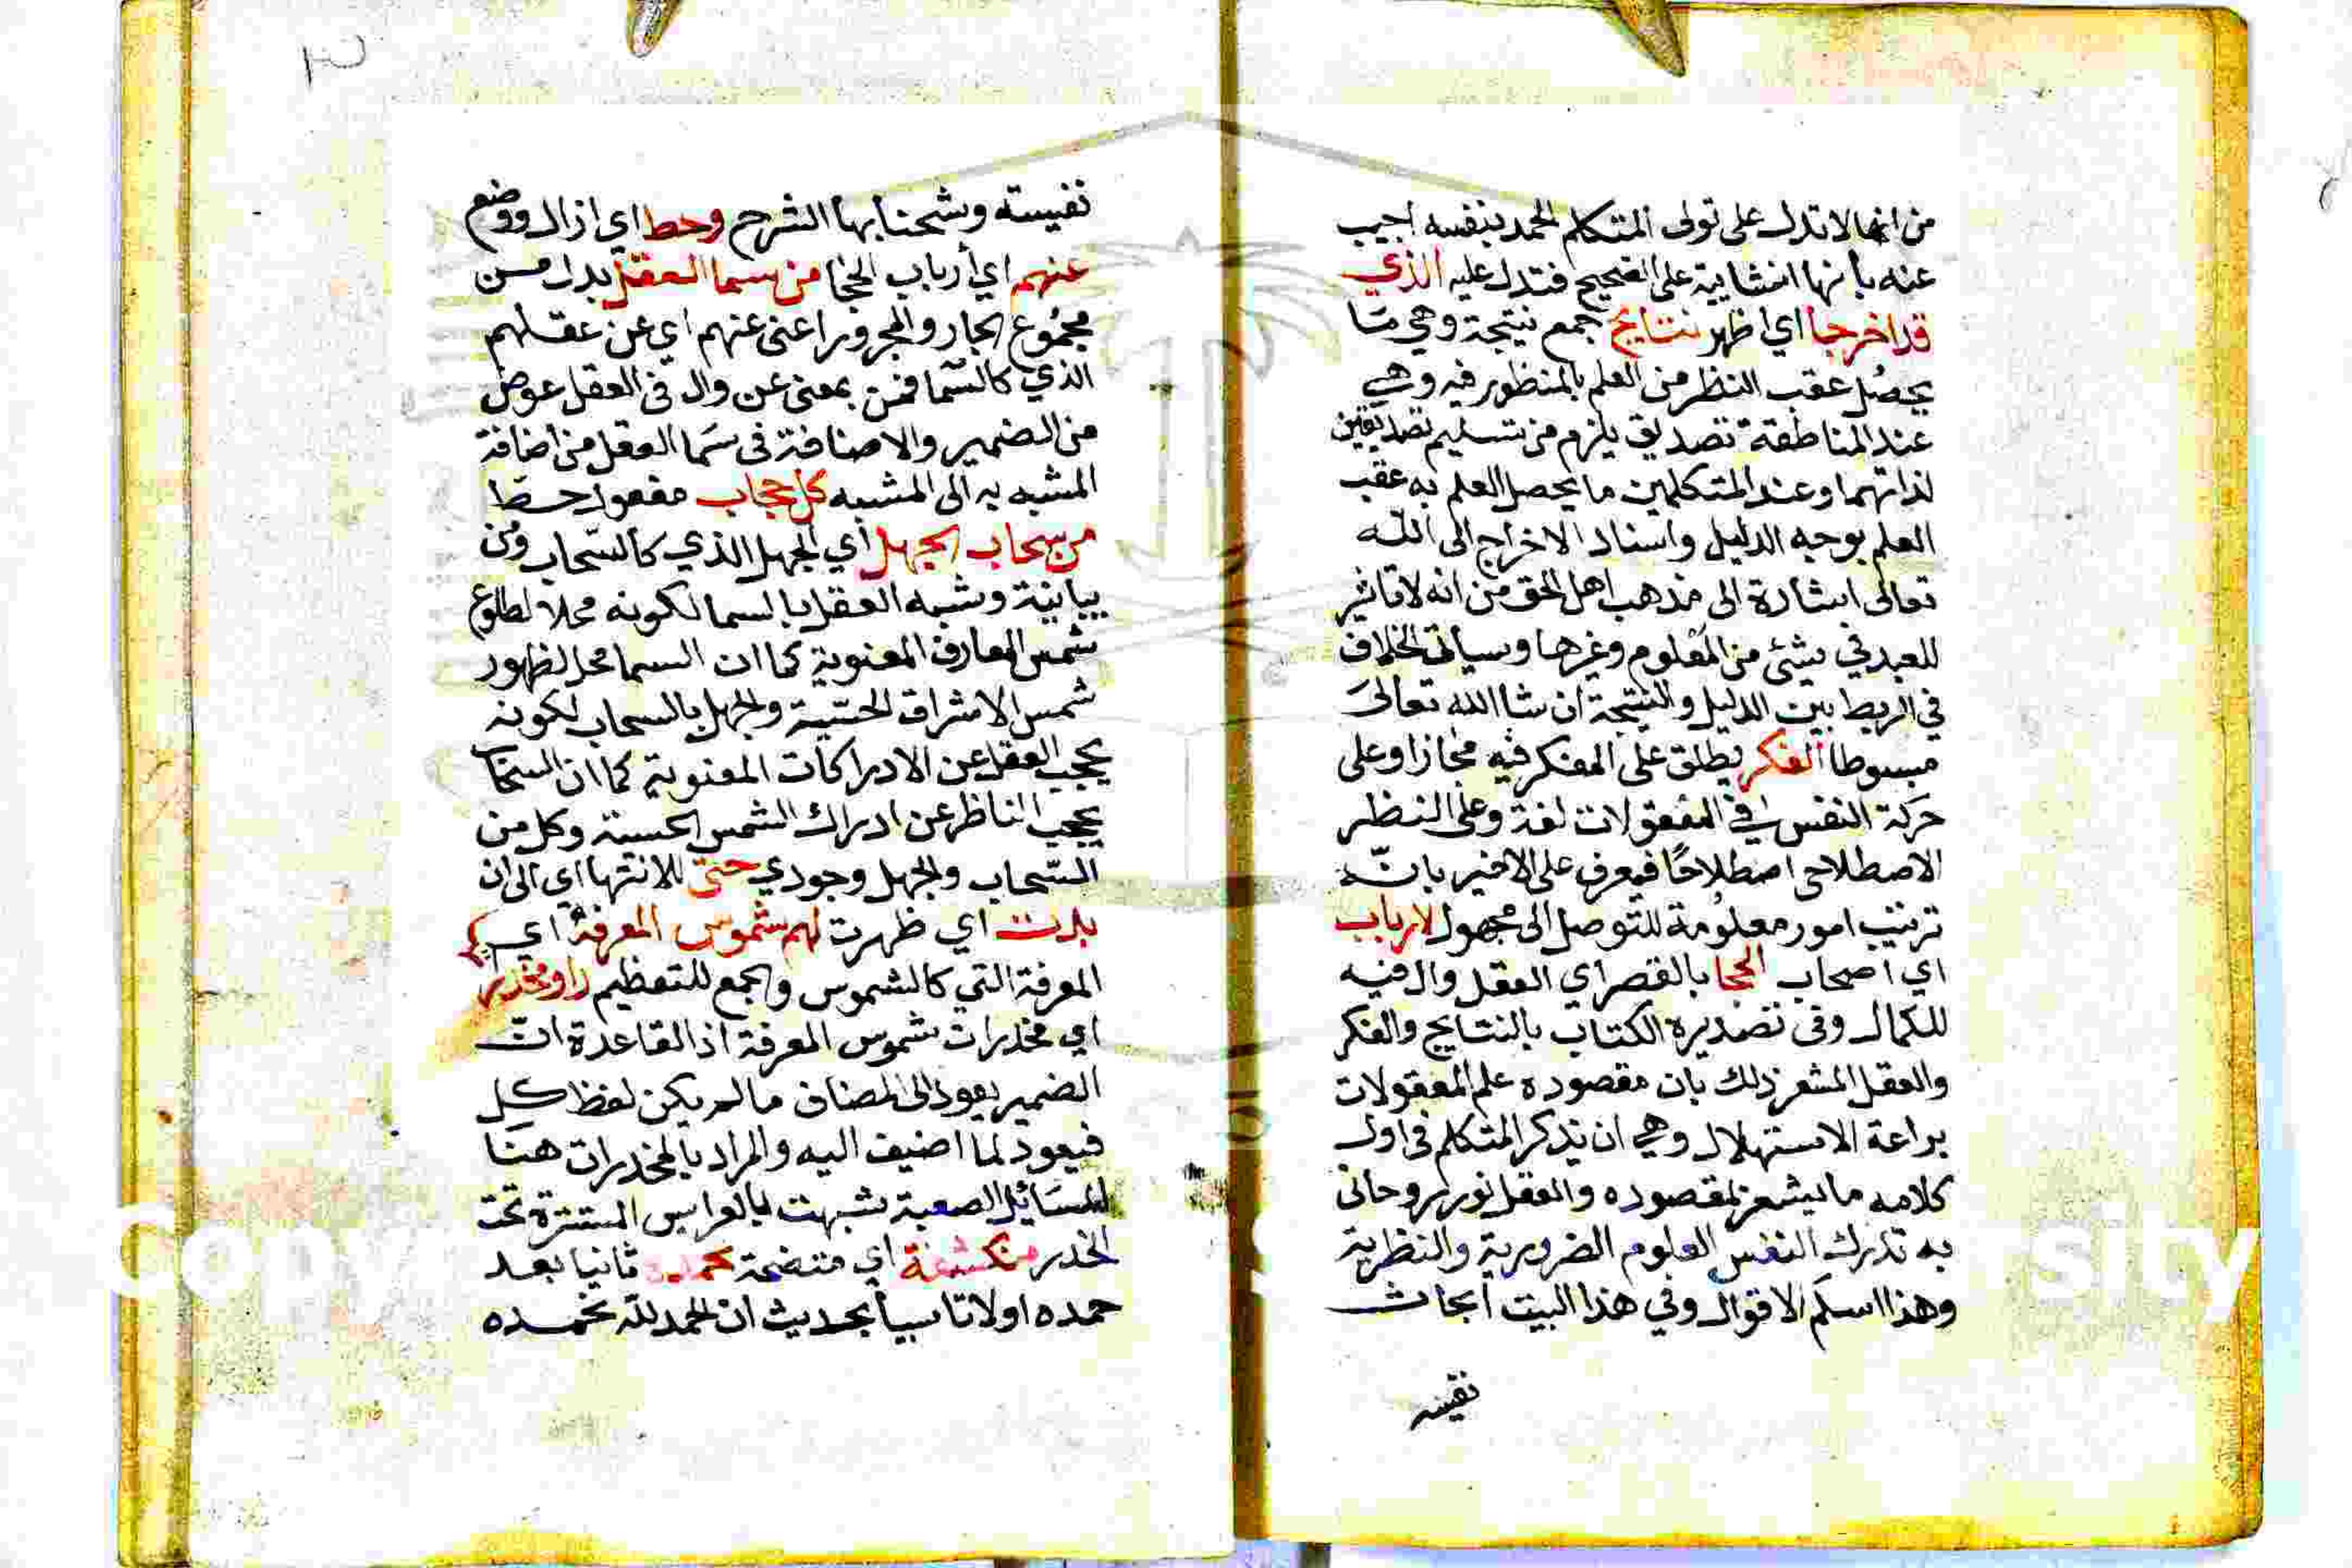 من انها لا تدل على تولى المتكلم الحمد بنفسه اجيب
عنه بانها انشايية على الصحيح فتدل عليه الذي
قد اخرجا اي اظهر نتايج جمع نتيجة وهي مَا
يحصُل عقب النظر من العلم بالمنظور فيه وهي
عند المناطقة تصديق يلزم من تسليم تصديقين
لذاتهما وعند المتكلمين ما يحصل العلم به عقب
العلم بوجه الدليل واسناد الاخراج الى اللّه
تعالى اشارة الى مذهب اهل الحق من انه لا تاثير
للعبد في شئ من العلوم وغيرها وسياتى الخلاف
في الربط بين الدليل والنتيجة ان شا الله تعالىَ
مبسوطا الفكر يطلق على المفكر فيه مجازا وعلى
حركة النفس في المعقولات لغة وعلى النظر
الاصطلاحى اصطلاحًا فيعرف على الاخير بانّه
ترتيب امور معلومة للتوصل الى مجهول لارباب
اي اصحاب الحجا بالقصر اي العقل وال فيه
للكمال وفى تصديره الكتاب بالنتايج والفكر
والعقل المشعر ذلك بان مقصوده علم المعقولات
براعة الاستهلال وهي ان يذكر المتكلم فى اول
كلامه ما يشعر بمقصوده والعقل نور روحانى
به تدرك النفس العلوم الضرورية والنظرية
وهذا اسلم الاقوال وفي هذا البيت ابحاث
نفيسه
نفيسته وشحنا بها الشرح وحط اي ازال ووضع
عنهم اي أرباب الحجا من سما العقل بدل من
مجمُوع الجار والمجرور اعنى عنهم اي عن عقلهم
الذي كالسّما فمن بمعنى عن وال فى العقل عوض
من الضمير والاضافة فى سَما العقل من اضافة
المشبه به الى المشبه كل حجاب مفعول حط
من سحاب الجهل أي الجهل الذي كالسّحاب ومن
بيانية وشبه العقل بالسما لكونه محلا لطلوع
شمس المعارف المعنوية كما ان السما محل لظهور
شمس الاشراق الحسّية والجهل بالسحاب لكونه
يحجب العقل عن الادراكات المعنوية كما ان السحا
يحجب الناظر عن ادراك الشمس الحسية وكل من
السّحاب والجهل وجودي حتى للانتها اي الى ان
بدت اي ظهرت لهم شموس المعرفة اي
المعرفة التي كالشموس والجمع للتعظيم راو مخدر
اي مخدرات شموس المعرفة اذ القاعدة انّ
الضمير يعود الى المضاف ما لم يكن لفظ كل
فيعود لما اضيف اليه والمراد بالمخدرات هنَا
المسَائل الصعبة شبهت بالعرايس المستترة تحت
الخدر منكشفة اي متضحة نحمده ثانيا بعد
حمده اولا تاسيا بحديث ان الحمد للّه نحمده